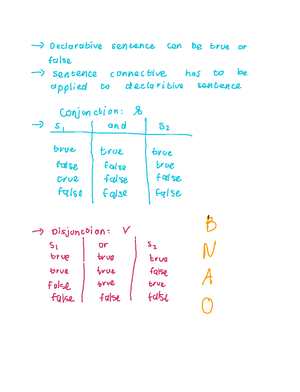 → Declarative sentence can be true or
false
→ sentence connective has to be
applied to declaritive sentence
Conjunction: &
→ S₁ and S₂
true true true
false false true
true false false
false false false
→ Disjunction: V
S₁ or S₂
true true true
true true false
false true true
false false false
B
N
A
O